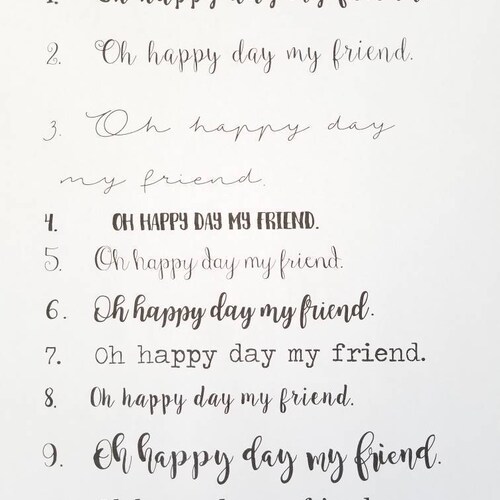 1. Oh happy day my friend.
2. Oh happy day my friend.
3. Oh happy day
my friend.
4. OH HAPPY DAY MY FRIEND.
5. Oh happy day my friend.
6. Oh happy day my friend.
7. Oh happy day my friend.
8. Oh happy day my friend.
9. Oh happy day my friend.